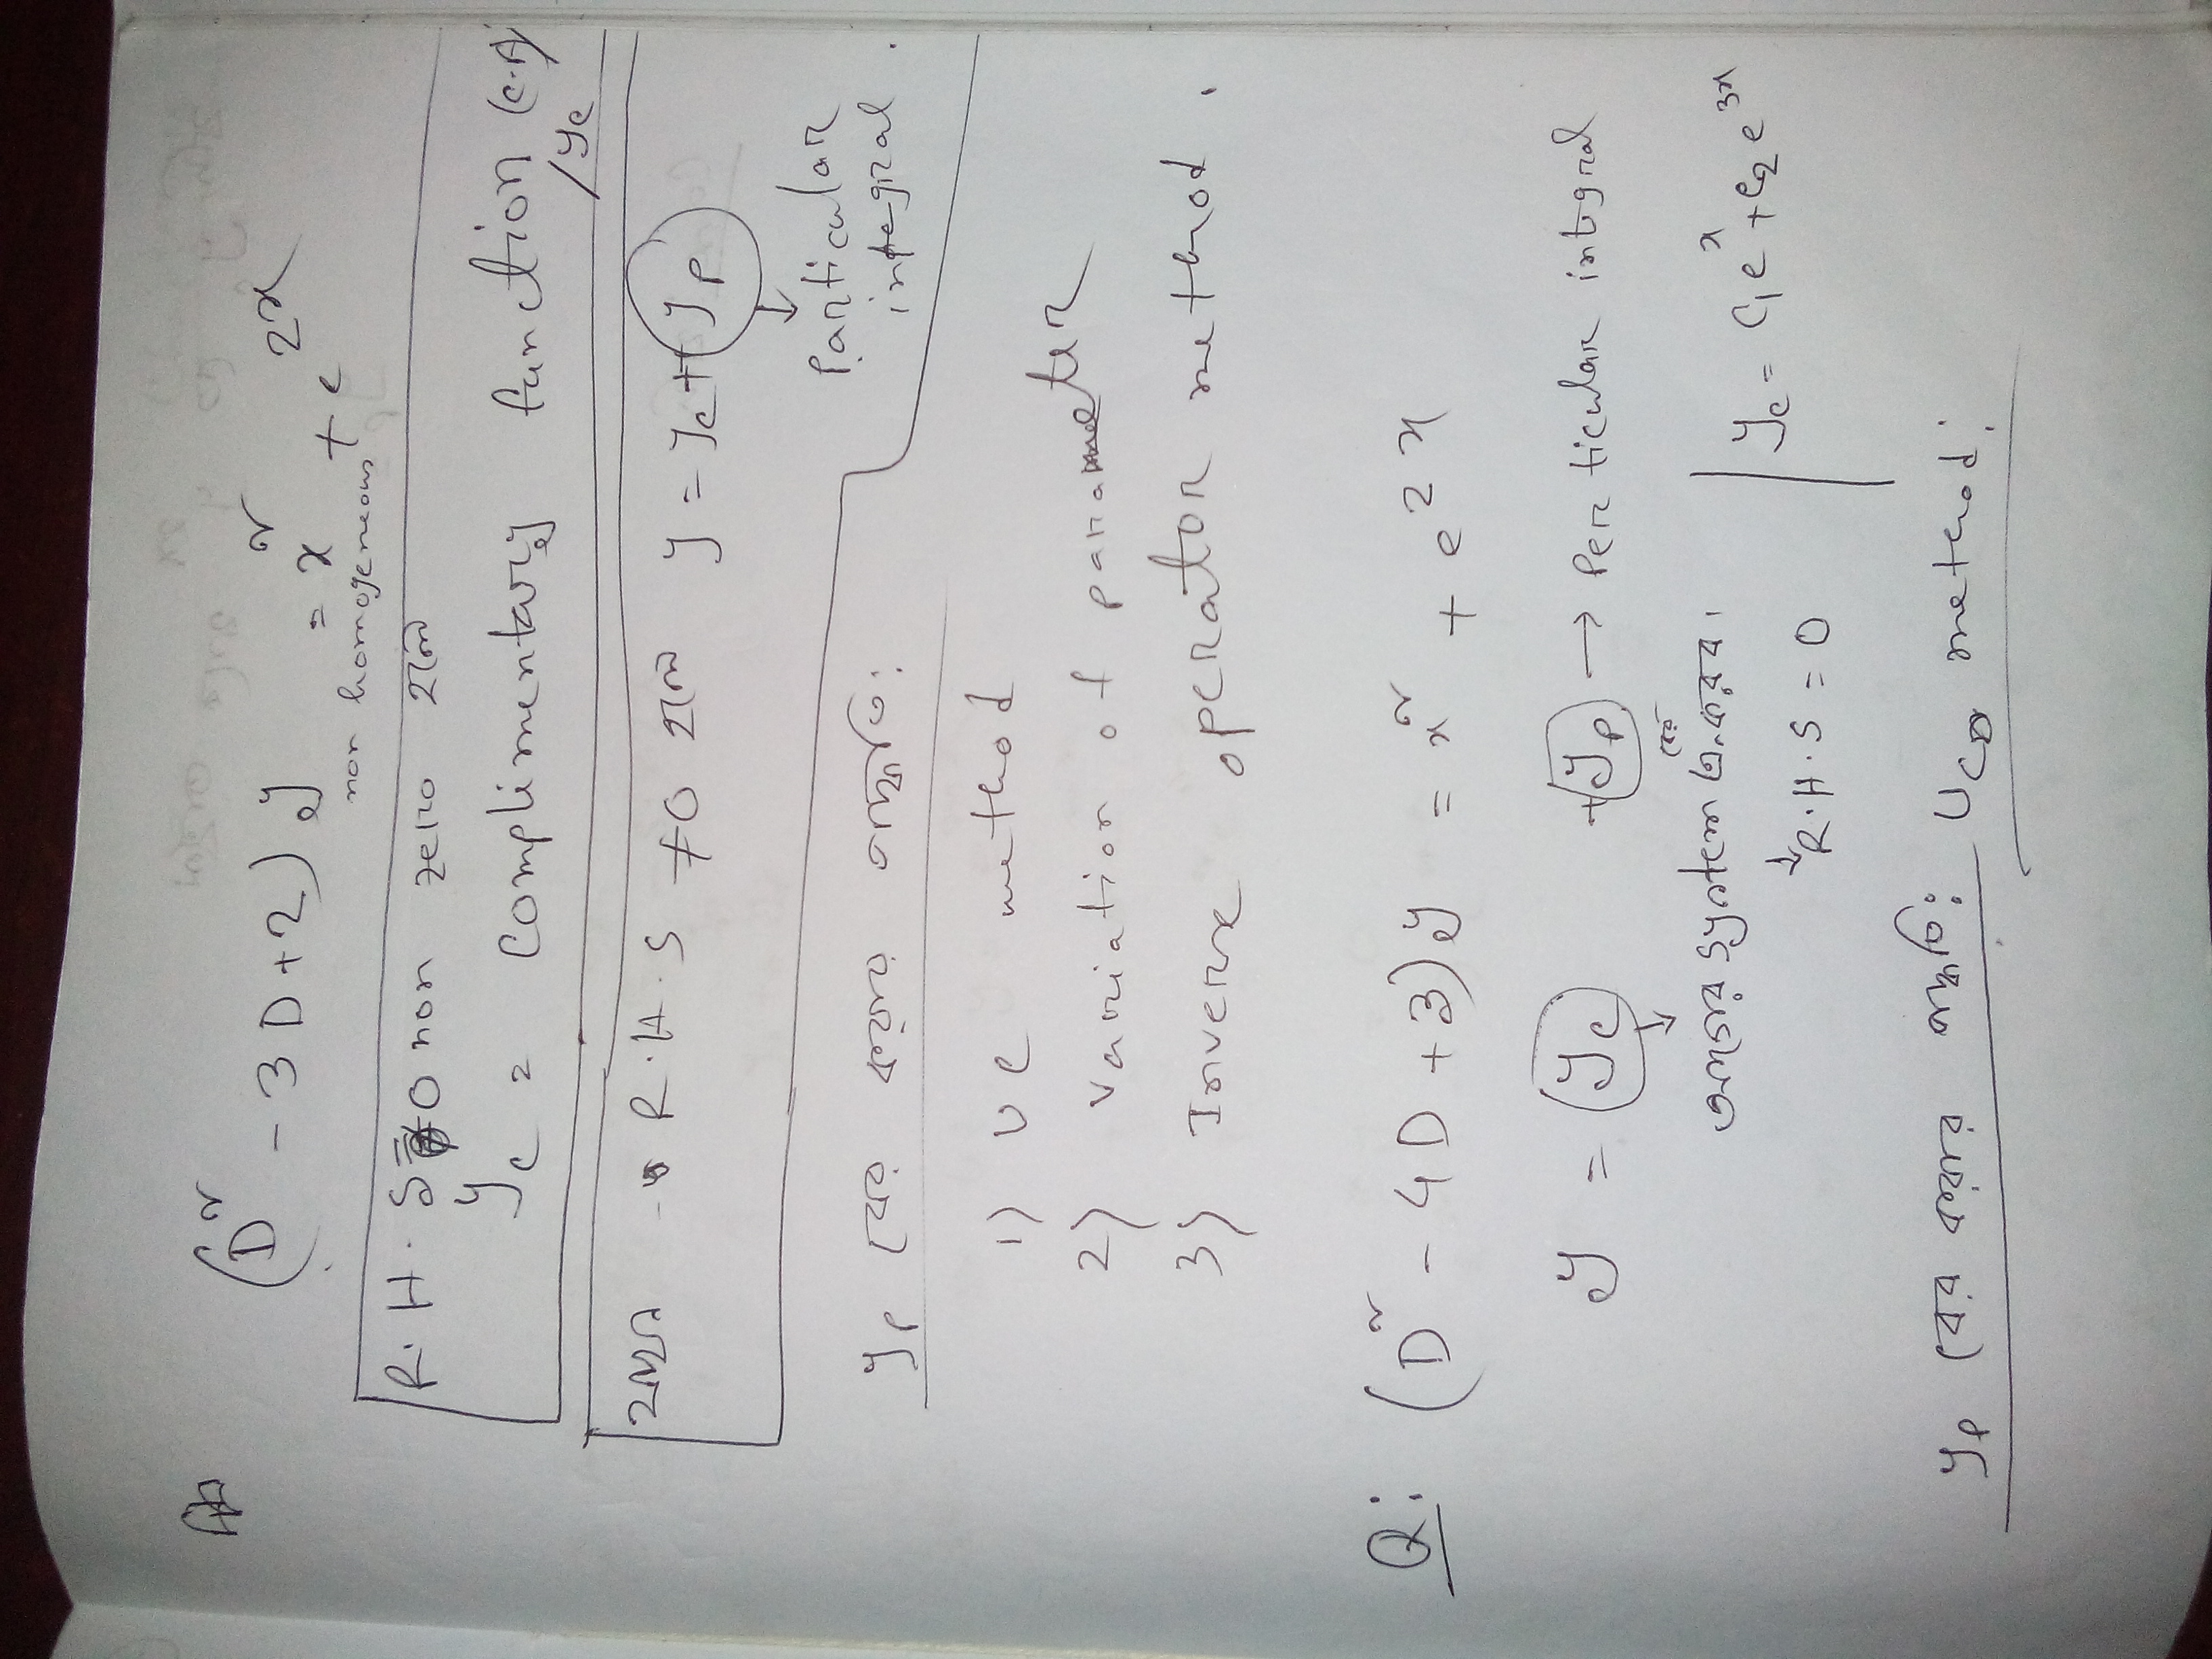 (D² - 3D + 2) y = x² + e^2x
non homogeneous
R.H.S = 0 non zero হলে
y_c = Complimentary function (C.F)
/y_c
যখন R.H.S ≠ 0 হলে y = y_c + y_p
Particular
integral.
y_p বের করার পদ্ধতি:
1) UC method
2) Variation of parameter
3) Inverse operator method.
Q: (D² - 4D + 3) y = x² + e^2x
y = y_c + y_p → Perticular integral
System
y_c = c₁e^x + c₂e^3x
R.H.S = 0
y_p বের করার পদ্ধতি: UC method: